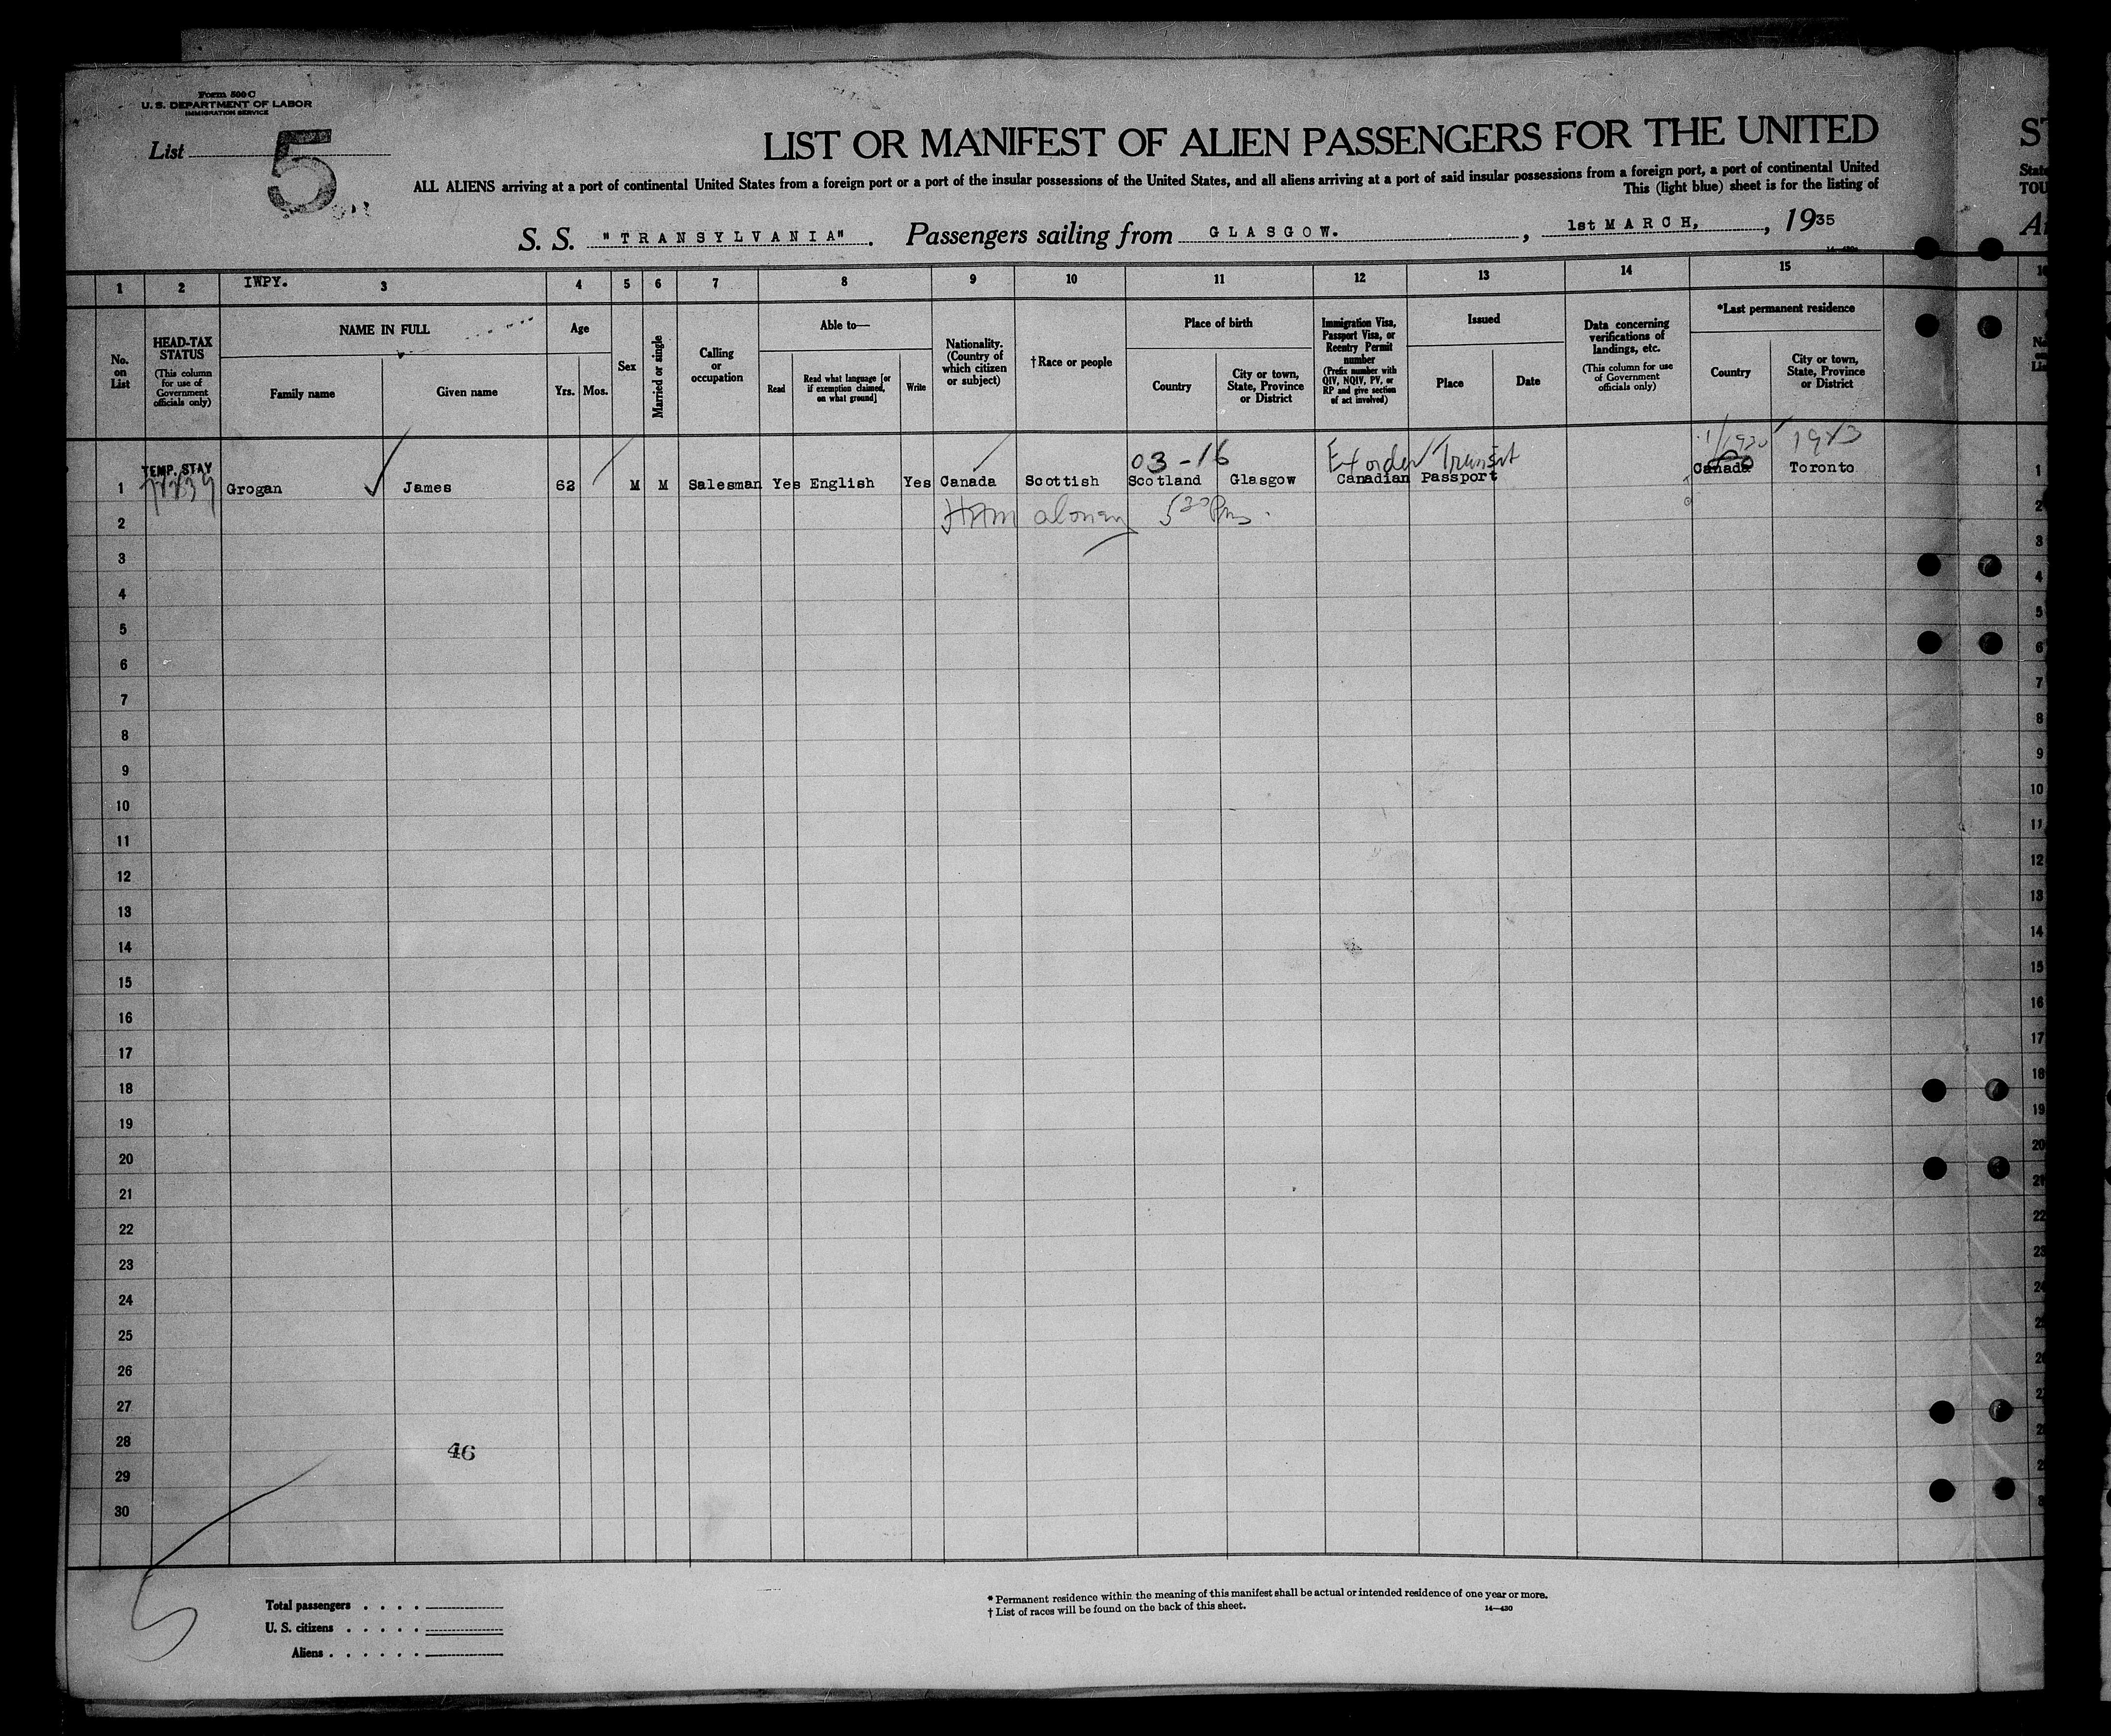 Form 500 C
U. S. DEPARTMENT OF LABOR
IMMIGRATION SERVICE
List 5
LIST OR MANIFEST OF ALIEN PASSENGERS FOR THE UNITED
ALL ALIENS arriving at a port of continental United States from a foreign port or a port of the insular possessions of the United States, and all aliens arriving at a port of said insular possessions from a foreign port, a port of continental United
This (light blue) sheet is for the listing of
S. S. "TRANSYLVANIA". Passengers sailing from GLASGOW. , 1st MARCH, , 1935
1 2 IWPY. 3 4 5 6 7 8 9 10 11 12 13 14 15
No. on List
HEAD-TAX STATUS (This column for use of Government officials only)
NAME IN FULL
Family name
Given name
Age
Yrs. Mos.
Sex
Married or single
Calling or occupation
Able to—
Read
Read what language [or if exemption claimed, on what ground]
Write
Nationality. (Country of which citizen or subject)
†Race or people
Place of birth
Country
City or town, State, Province or District
Immigration Visa, Passport Visa, or Reentry Permit number (Prefix number with QIV, NQIV, PV, or RP and give section of act involved)
Issued
Place
Date
Data concerning verifications of landings, etc. (This column for use of Government officials only)
*Last permanent residence
Country
City or town, State, Province or District
TEMP. STAY
03-16
Transit
1 Grogan James 62 M M Salesman Yes English Yes Canada Scottish Scotland Glasgow Canadian Passport Canada Toronto 1
2
3
4
5
6
7
8
9
10
11
12
13
14
15
16
17
18
19
20
21
22
23
24
25
26
27
28
46
29
30
5
Total passengers
U. S. citizens
Aliens
* Permanent residence within the meaning of this manifest shall be actual or intended residence of one year or more.
† List of races will be found on the back of this sheet.
14—430